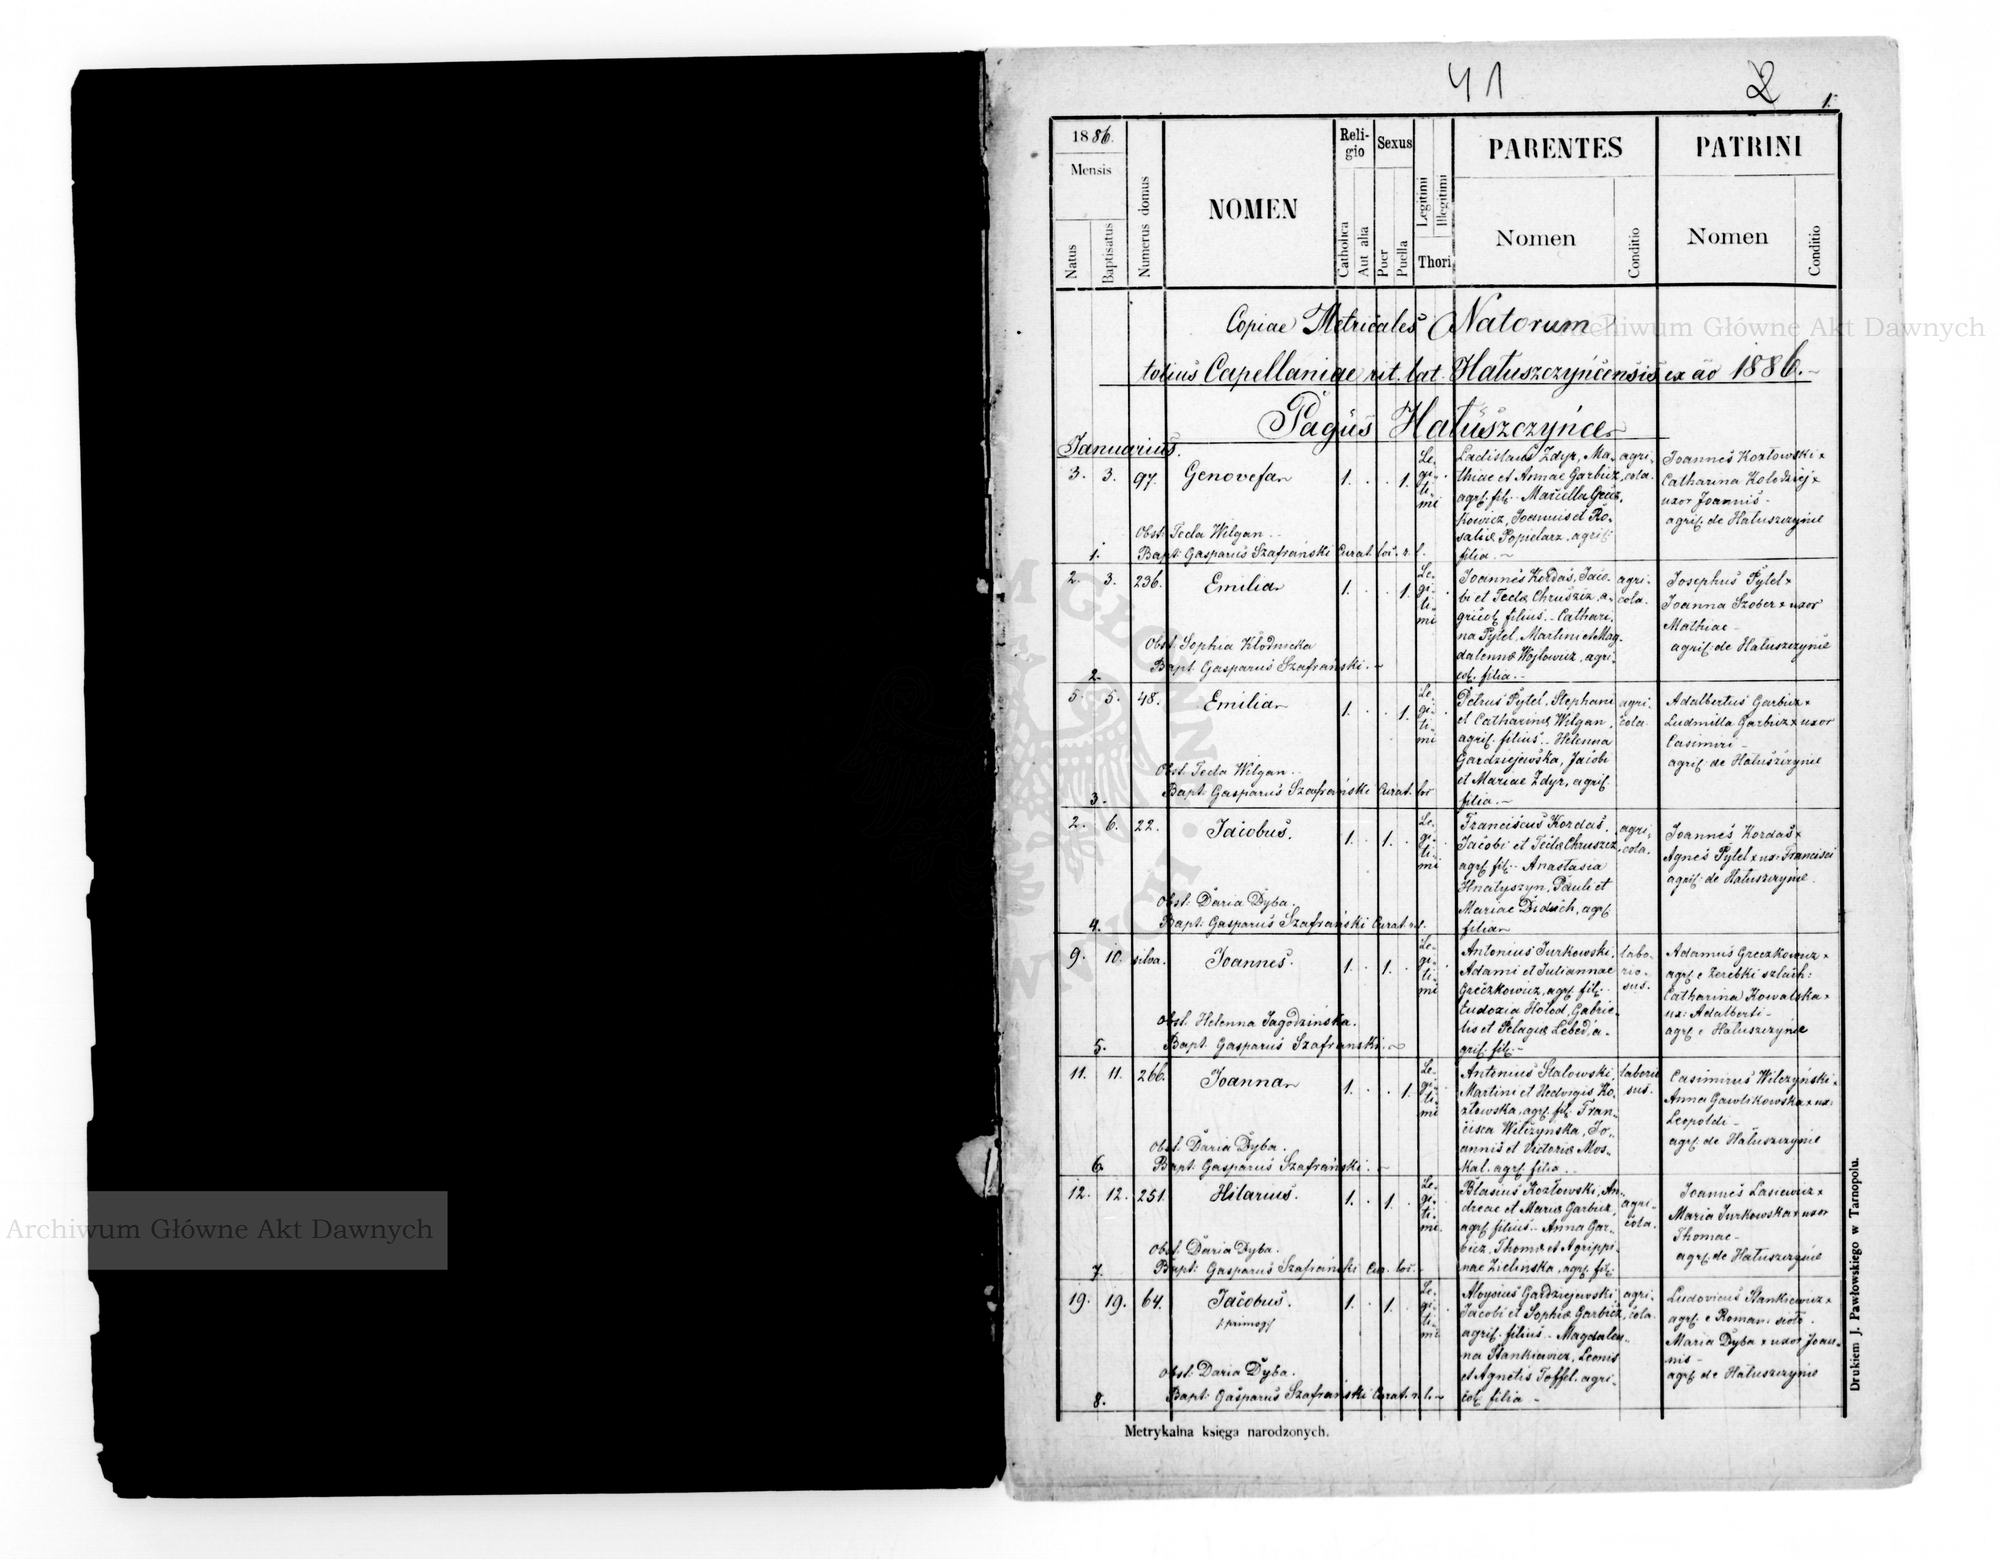 41
2
1.
1886.
Mensis
Natus
Baptisatus
Numerus domus
NOMEN
Religio
Catholica
Aut alia
Sexus
Puer
Puella
Legitimi
Illegitimi
Thori
PARENTES
Nomen
Conditio
PATRINI
Nomen
Conditio
Copiae Metricales Natorum
totius Capellaniae rit. lat. Hałuszczyńcensis ex ao 1886.
Pagus Hałuszczyńce
Januarius.
3. 3. 97. Genovefa 1. . . 1.
Le-
gi-
ti-
mi
Ladislaus Zdyr, Ma-
thiae et Annae Garbicz
agric. fil. Marcella Grecz-
kowicz, Joannis et Ro-
salie Popielarz, agric.
filia.
agri-
cola.
Joannes Kozłowski x
Catharina Kołodziej x
uxor Joannis
agric. de Hałuszczyńce
Obst. Tecla Wilgan
1. Bapt: Gasparus Szafrański Curat. loc. r. l.
2. 3. 236. Emilia 1. . . 1.
Le-
gi-
ti-
mi
Joannes Kordas, Jaco-
bi et Tecle Chruszcz, a-
gricol. filius. Cathari-
na Pytel, Martini et Mag-
dalenne Wojtowicz, agri-
col. filia.
agri-
cola.
Josephus Pytel x
Joanna Szober x uxor
Mathiae
agric. de Hałuszczyńce
Obst. Sophia Kłodnicka
2. Bapt: Gasparus Szafrański.
5. 5. 48. Emilia 1. . . 1.
Le-
gi-
ti-
mi
Petrus Pytel, Stephani
et Catharine Wilgan,
agric. filius. Helenna
Gardziejewska, Jacobi
et Mariae Zdyr, agric.
filia.
agri-
cola.
Adalbertus Garbicz x
Ludmilla Garbicz x uxor
Casimiri
agric. de Hałuszczyńce
Obst. Tecla Wilgan
3. Bapt: Gasparus Szafrański Curat. loc
2. 6. 22. Jacobus. 1. . 1. .
Le-
gi-
ti-
mi
Franciscus Kordas,
Jacobi et Tecle Chruszcz
agric. fil. Anastasia
Hnatyszyn, Pauli et
Mariae Diduch, agric.
filia
agri-
cola.
Joannes Kordas x
Agnes Pytel x ux. Francisci
agric. de Hałuszczyńce.
Obst: Daria Dyba.
4. Bapt: Gasparus Szafrański Curat. r. l.
9. 10. silva. Joannes. 1. . 1. .
Le-
gi-
ti-
mi
Antonius Jurkowski,
Adami et Juliannae
Greczkowicz, agric. fil.
Eudoxia Hołod, Gabrie-
lis et Pelagie Lebed, a-
gric. fil.
labo-
rio-
sus.
Adamus Greczkowicz x
agric. e Zerebki szlach:
Catharina Kowalska x
ux: Adalberti
agric. e Hałuszczyńce
Obst. Helenna Jagodzińska.
5. Bapt: Gasparus Szafranski.
11. 11. 266. Joanna 1. . . 1.
Le-
gi-
ti-
mi
Antonius Stalowski,
Martini et Hedvigis Ko-
złowska, agric. fil. Fran-
cisca Wilczynska, Jo-
annis et Victorie Mos-
kal, agric. filia.
laborio
sus.
Casimirus Wilczyński x
Anna Gawlikowska x ux:
Leopoldi
agric. de Hałuszczyńce
Obst. Daria Dyba.
6. Bapt: Gasparus Szafrański.
12. 12. 251. Hilarius. 1. . 1. .
Le-
gi-
ti-
mi
Blasius Kozłowski, An-
dreae et Marie Garbicz,
agric. filius. Anna Gar-
bicz, Thome et Agrippi-
nae Zielinska, agric. fil.
agri-
cola.
Joannes Lasiewicz x
Maria Jurkowska x uxor
Thomae
agric. de Hałuszczyńce
Obst. Daria Dyba.
7. Bapt: Gasparus Szafrański Cur. loc.
19. 19. 64. Jacobus. 1. . 1. .
/:primog:/
Le-
gi-
ti-
mi
Aloysius Gardziejewski,
Jacobi et Sophie Garbicz,
agric. filius. Magdalen-
na Stankiewicz, Leonis
et Agnetis Toffel, agri-
col. filia
agri-
cola.
Ludovicus Stankiewicz x
agric. e Roman. sioło.
Maria Dyba x uxor Joan-
nis
agric. de Hałuszczyńce
Obst: Daria Dyba.
8. Bapt: Gasparus Szafrański Curat. r. l.
Metrykalna księga narodzonych.
Drukiem J. Pawłowskiego w Tarnopolu.
Archiwum Główne Akt Dawnych
Archiwum Główne Akt Dawnych